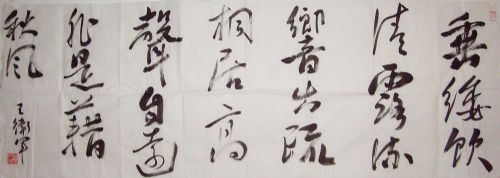 垂緌飲
清露流
響出疏
桐居高
聲自遠
非是藉
秋風
衛軍